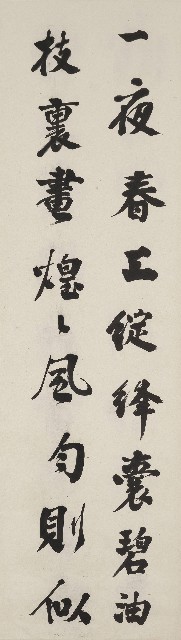 一夜春工綻絳囊碧油
枝裏晝煌々風勻則似